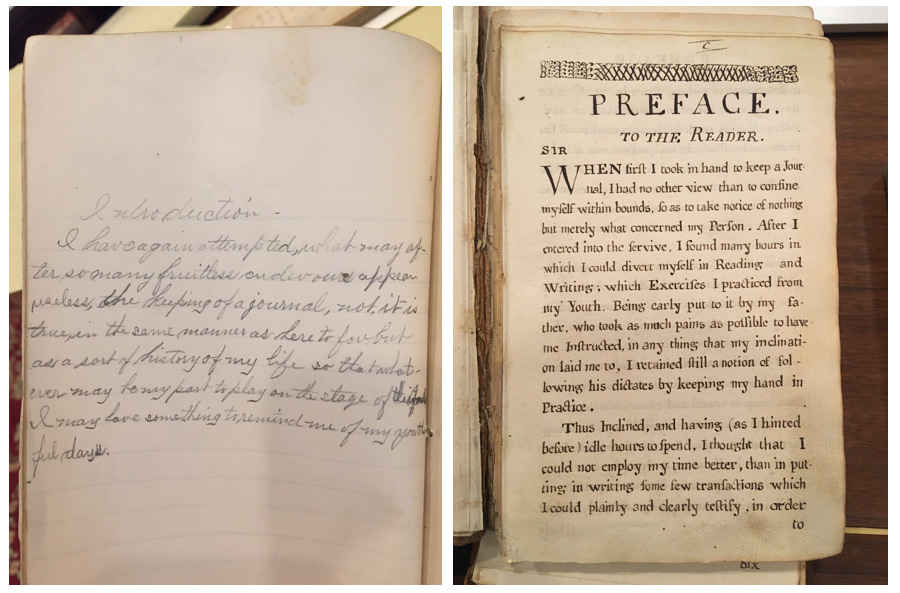 Introduction -
I have again attempted, what may af-
ter so many fruitless endevours appear
useless, the keeping of a journal, not, it is
true, in the same manner as here to for but
as a sort of history of my life so that what-
ever may be my part to play on the stage of
I may have something to remind me of my youth
ful days.
C
PREFACE.
TO THE READER.
SIR
WHEN first I took in hand to keep a Jour-
nal, I had no other view than to confine
myself within bounds, so as to take notice of nothing
but merely what concerned my Person. After I
entered into the service, I found many hours in
which I could divert myself in Reading and
Writing; which Exercises I practiced from
my Youth. Being early put to it by my fa-
ther, who took as much pains as possible to have
me Instructed, in any thing that my inclinati-
on laid me to, I retained still a notion of fol-
lowing his dictates by keeping my hand in
Practice.
Thus Inclined, and having (as I hinted
before) idle hours to spend, I thought that I
could not employ my time better, than in put-
ting in writing some few transactions which
I could plainly and clearly testify, in order
to
six